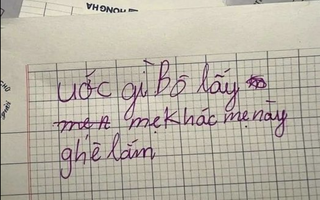 HONG HA
ước gì Bố lấy
mẹ khác mẹ này
ghê lắm